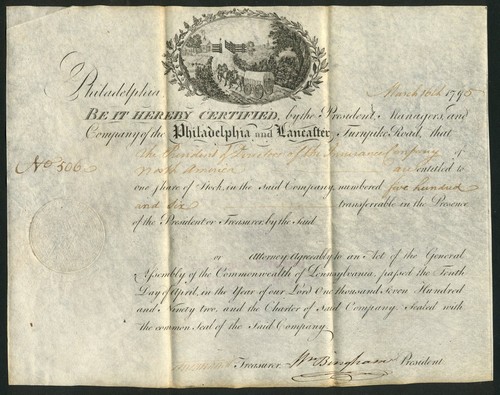 Philadelphia March 10th 1795
BE IT HEREBY CERTIFIED, by the President, Managers, and
Company of the Philadelphia and Lancaster Turnpike Road, that
the President & Directors of the Insurance Company of
No 506 North America are entitled to
one Share of Stock in the Said Company, numbered five hundred
and Six transferrable in the Presence
of the President or Treasurer by the Said
or Attorney Agreeably to an Act of the General
Assembly of the Commonwealth of Pennsylvania, passed the Tenth
Day of April, in the Year of our Lord One thousand Seven Hundred
and Ninety two, and the Charter of Said Company. Sealed with
the common Seal of the Said Company
Treasurer Wm Bingham President